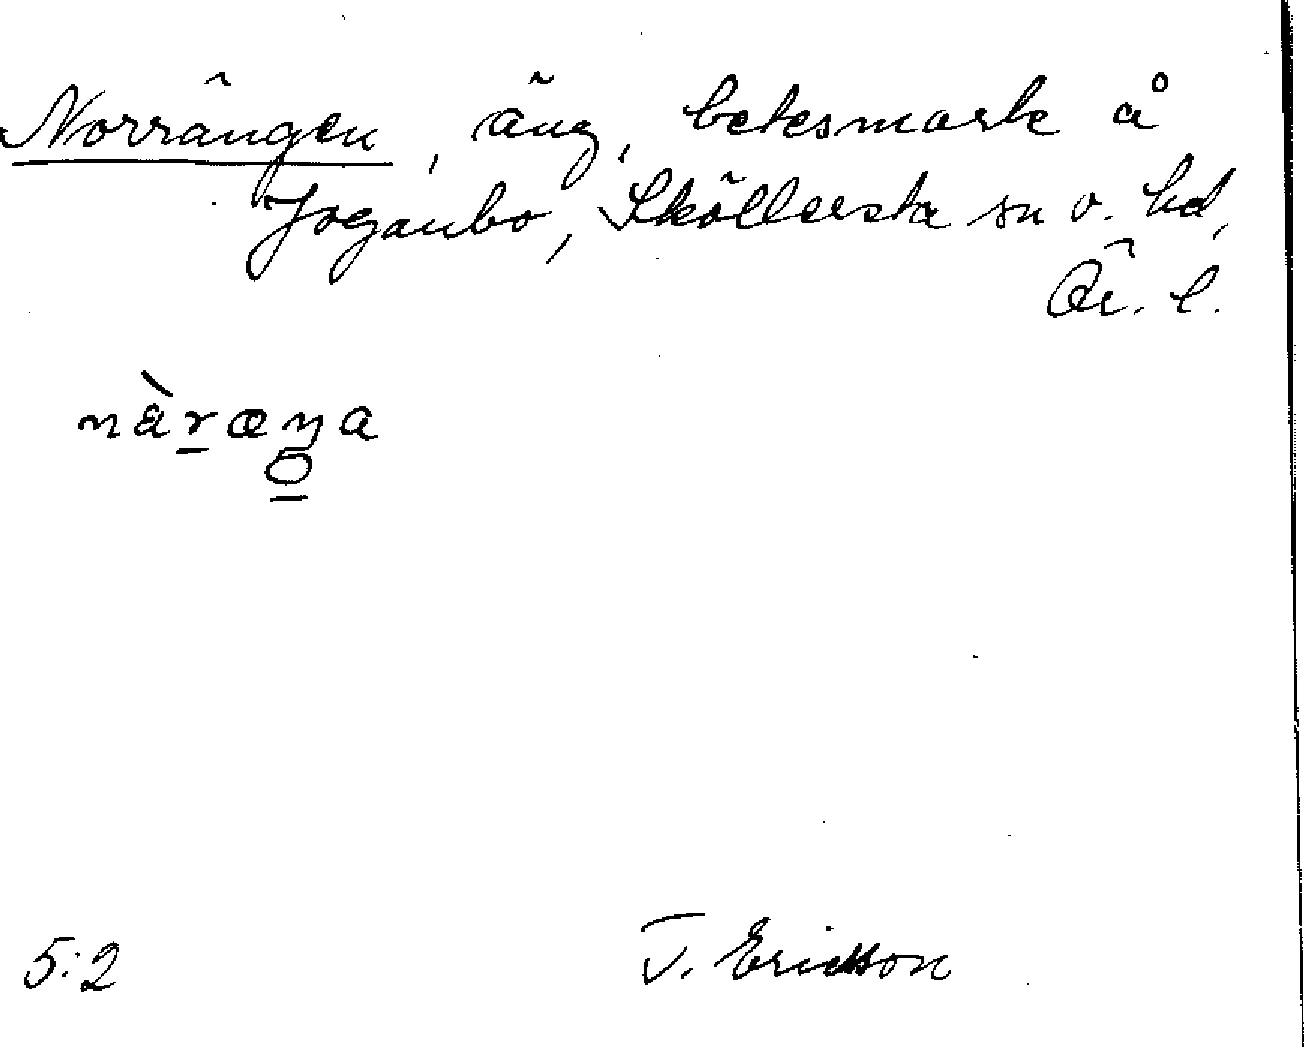 Norrängen, äng, betesmark å
Joganbo, Sköllersta sn o. hd,
Ör. l.
nàræŋa
5:2
T. Ericsson